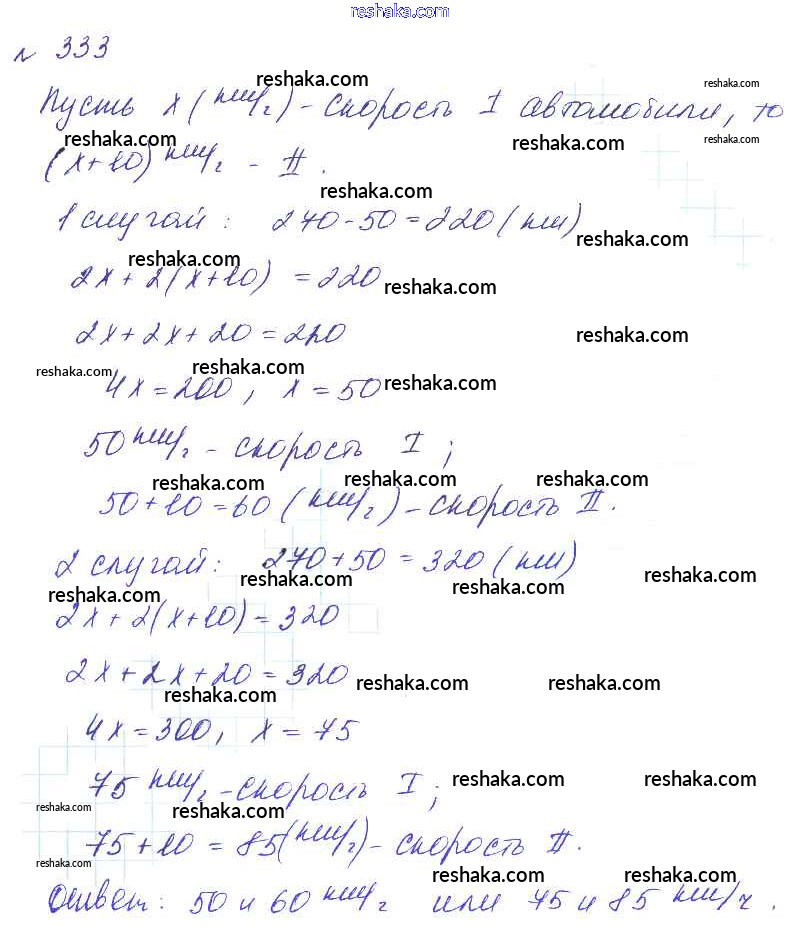 reshaka.com
№ 333
reshaka.com reshaka.com
Пусть x (км/г) - скорость I автомобиля, то
reshaka.com reshaka.com reshaka.com
(x+10) км/г - II.
reshaka.com
1 случай: 270-50=220 (км)
reshaka.com
reshaka.com
2x+2(x+10) =220
reshaka.com
2x+2x+20=220
reshaka.com
reshaka.com reshaka.com
4x=200, x=50
reshaka.com
50 км/г - скорость I;
reshaka.com reshaka.com reshaka.com
50+10=60 (км/г) - скорость II.
2 случай: 270+50=320 (км)
reshaka.com reshaka.com reshaka.com reshaka.com
2x+2(x+10)=320
2x+2x+20=320
reshaka.com reshaka.com reshaka.com
4x=300, x=75
75 км/г - скорость I;
reshaka.com reshaka.com
reshaka.com reshaka.com
75+10=85(км/г) - скорость II.
reshaka.com reshaka.com reshaka.com
Ответ: 50 и 60 км/г или 75 и 85 км/ч.